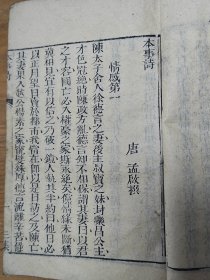 本事詩
唐 孟啟撰
情感第一
陳太子舍人徐德言之妻後主叔寶之妹封樂昌公主
才色冠絕時陳政方亂德言知不相保謂其妻曰以君
之才容國亡必入權豪之家斯永絕矣儻情緣未斷猶
冀相見宜有以信之乃破一鏡人執其半約曰他日必
以正月望日賣於都市我當在即以是日訪之及陳亡
其妻果入越公楊素之家寵嬖殊厚德言流離辛苦僅
本事詩